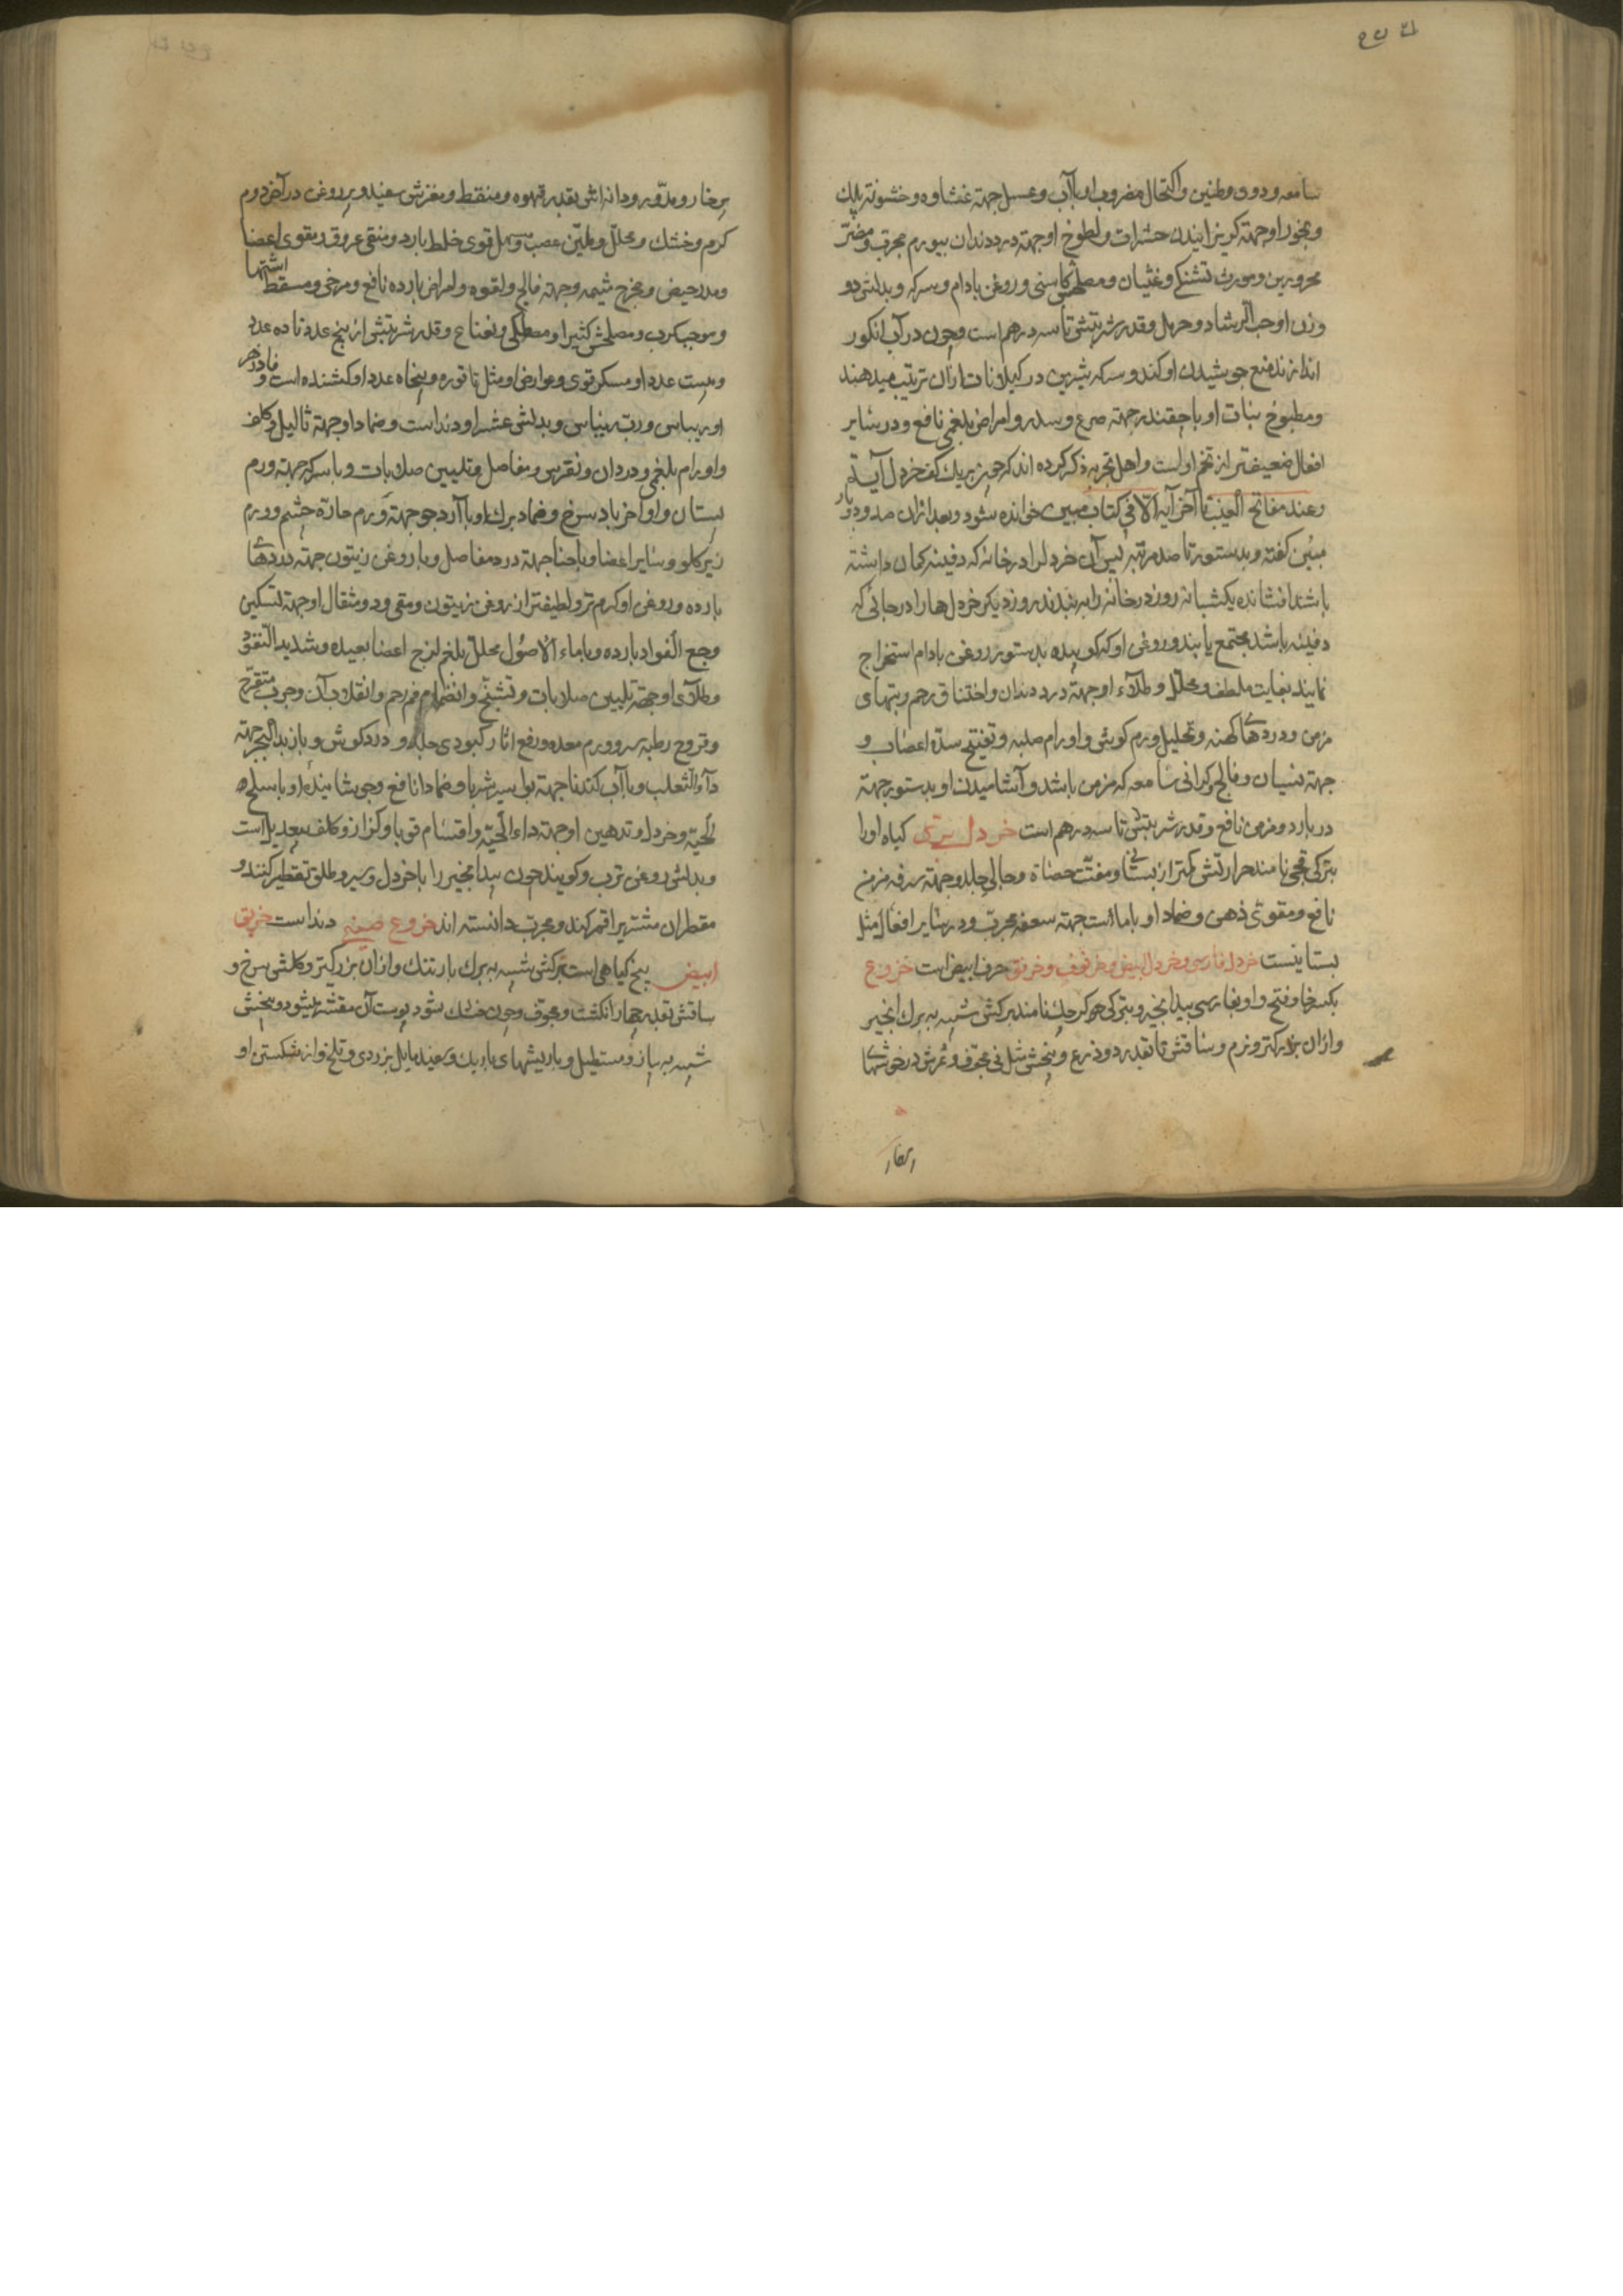 سامعه و دوی و طنین و اکتحال مضروب او با آب و عسل جهته غشاوه و خشونته پلک
و بخور او جهته کریزانیدن حشرات و لطوخ او جهته درد دندان بیورم مجرب و مضر
محرورین و مورث تشنکی و غثیان و مصلحش کاسنی و روغن بادام و سرکه و بدلش دو
وزن او حب الرشاد و حرمل و قدر شربتش تا سه درهم است و چون در آب انکور
اندازند منع جوشیدن او کند و سرکه شیرین در کیلانات ازان ترتیب میدهند
و مطبوخ نبات او با چقندر جهته صرع و سدر و امراض بلغمی نافع و در سایر
افعال ضعیفتر از تخم او است و اهل تجربه ذکر کرده اند که چون بر یک کف خردل آیه
و عنده مفاتح الغیب تا آخر آیه الا فی کتاب مبین خوانده شود و بعد ازان صد و دو بار
مبین کفته و بدستور تا صد مرتبه پس آن خردل را در خانه که دفینه کمان داشته
باشند افشانده یکشبانه روز در خانه را به بندند روز دیکر خردل ها را در جائی که
دفینه باشد مجتمع یابند و روغن او که کوبیده بدستور روغن بادام استخراج
نمایند بغایت ملطف و محلل و طلاء او جهته درد دندان و اختناق رحم و تبهای
مزمن و دردهای کهنه و تحلیل ورم کوش و اورام صلبه و تفتیح سده اعصاب و
جهته نسیان و فالج و کرانی سامعه که مزمن باشد و آشامیدن او بدستور جهته
در بارد و مزمن نافع و قدر شربتش تا سه درهم است خردل بری کیاه او را
بترکی قچی نامند حرارتش کمتر از بستانی و مفتت حصاة و جالی جلد و جهته سرفه مزمن
نافع و مقوی ذهن و ضماد او با ماست جهته سعفه مجرب و در سایر افعال مثل
بستانیست خردل فارسی و خردل ابیض و خرفوف و خرفق حرف ابیض است خروع
بکسر خا و فتح واو بفارسی بیدانجیر و بترکی کرچک نامند برکش شبیه به برک انجیر
و ازان بزرکتر و نرم و ساقش تا بقدر دو ذرع و بیخش مثل نی مجوف و ثمرش در خوشها
پرخار و مدور و دانه اش بقدر قهوه و منقط و مغزش سفید و پرروغن در آخر دوم
کرم و خشک و محلل و ملین عصب و مسهل قوی خلط بارد و منقی عروق و مقوی اعضا
و مدر حیض و مخرج مشیمه و جهته فالج و لقوه و امراض بارده نافع و مرخی و مسقط اشتها
و موجب کرب و مصلحش کثیرا و مصطکی و نعناع و قدر شربتش از پنج عدد تا ده عدد
و بیست عدد او مسکر قوی و عوارض او مثل تاتوره و پنجاه عدد او کشنده است و فادزهر
او ریباس و رب ریباس و بدلش عشر او دند است و ضماد او جهته ثالیل و کلف
و اورام بلغمی و در دان و نقرس و مفاصل و تلیین صلابات و با سرکه جهته ورم
پستان و اواخر باد سرخ و ضماد برک او با آرد جو جهته ورم حاره چشم و ورم
زیر کلو و سایر اعضا و با حنا جهته درد مفاصل و با روغن زیتون جهته دردهای
بارده و روغن او کرم تر و لطیفتر از روغن زیتون و مقی و دو مثقال او جهته تسکین
وجع الفواد بارده و با ماء الاصول محلل بلغم لزج اعضا بعیده و شدید النفوذ
و طلای او جهته تلیین صلابات و تشنج و انضمام فم رحم و انقلاب آن و جرب متقرح
و قروح رطبه سر و ورم معده و رفع اثار کبودی جلد و درد کوش و با زبد البحر جهته
داء الثعلب و با آب کندنا جهته بواسیر شربا و ضمادا نافع و جوشانیده او با سلخ
الحیه و خردل و تدهین او جهته داء الحیه و اقسام قوبا و کزاز و کلف بعدیل است
و بدلش روغن ترب و کویند چون بیدانجیر را با خردل و سیر و طلق تقطیر کنند و
مقطران مشتهر را قمر کند و مجرب دانسته اند خروع صینی دند است خربق
ابیض بیخ کیاهی است برکش شبیه به برک بارتنک و ازان بزرکتر و کلش سرخ و
ساقش بقدر چهار انکشت و مجوف و چون خشک شود پوست آن مقشر میشود و بیخش
شبیه به پیاز و مستطیل و با ریشهای باریک و سفید مایل بزردی و تلخ و از شکستن او